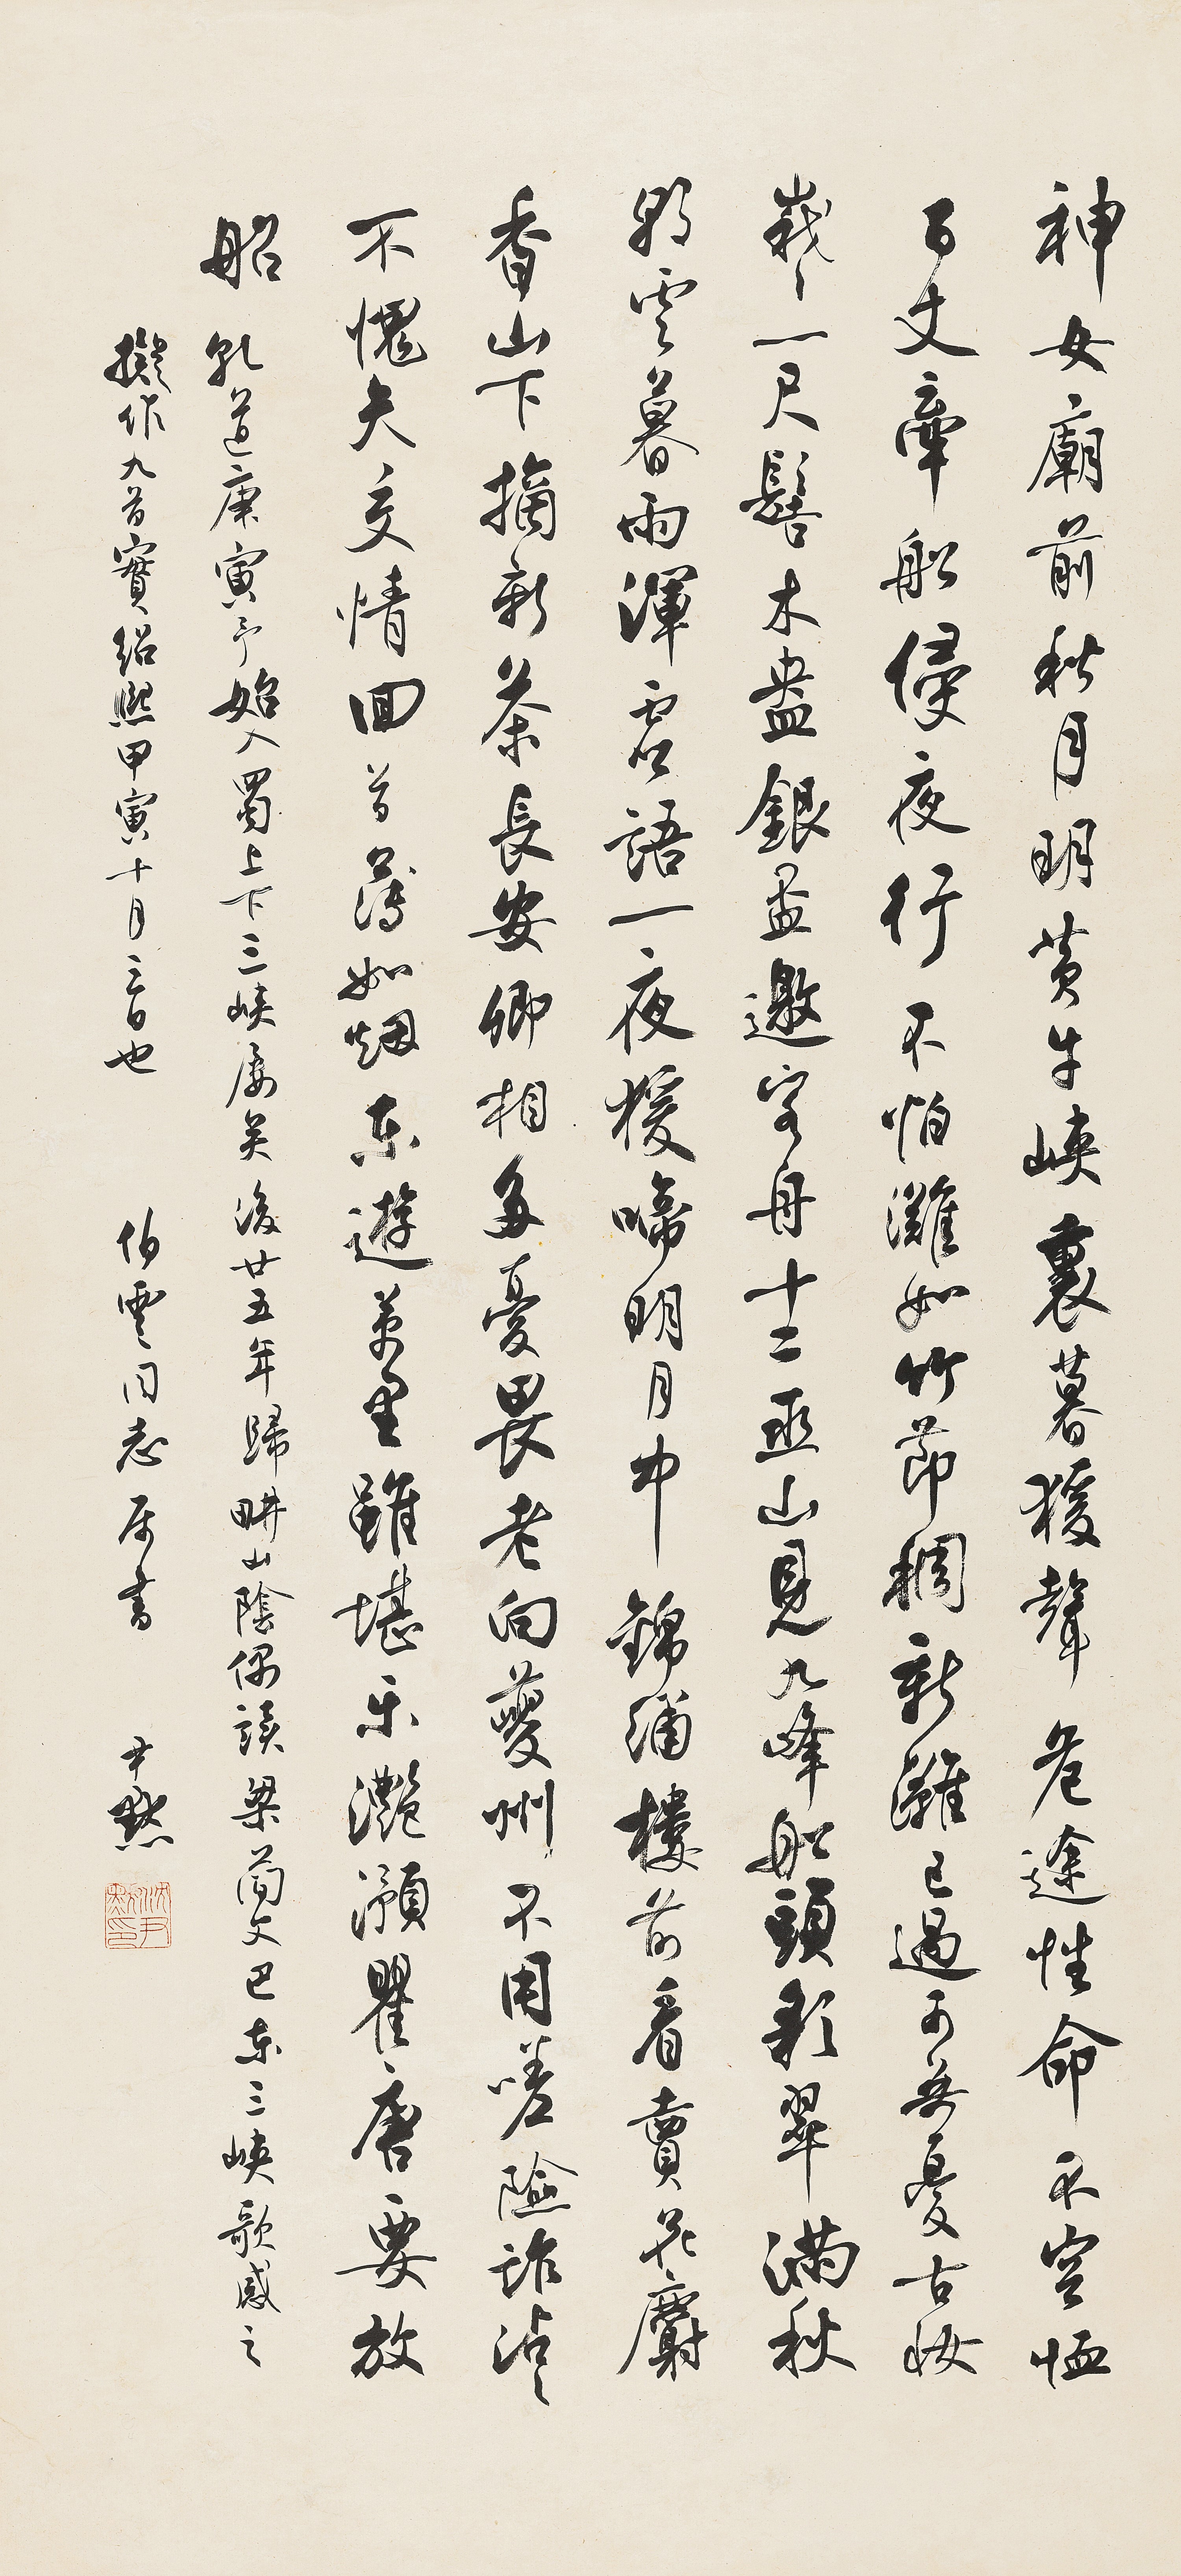 神女廟前秋月明黃牛峽裏暮猨聲危途性命不容恤
百丈牽船侵夜行不怕灘如竹節稠新灘已過可無憂古妝
峩〻一尺髻木盎銀盃邀客舟十二巫山見九峰船頭彩翠滿秋
空朝雲暮雨渾虛語一夜猨啼明月中錦繡樓前看賣花麝
香山下摘新茶長安卿相多憂畏老向夔州不用嗟險詐沾〻
不愧天交情回首薄如烟東遊萬里雖堪樂灧澦瞿唐要放
船
乾道庚寅予始入蜀上下三峽屡矣後廿五年歸畊山陰偶讀梁簡文巴東三峽歌感之
擬作九首實紹熙甲寅十月二日也
伯雲同志屬書
尹默
沈尹默印